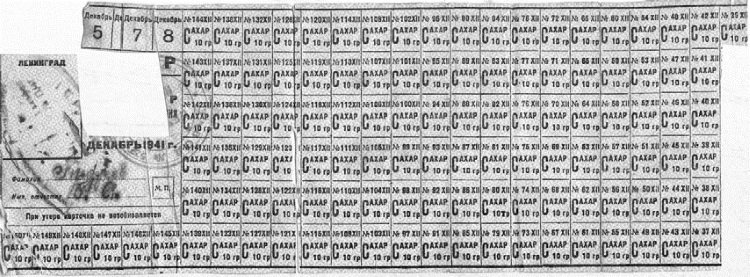 Декабрь Де Декабрь Декабрь № 144XII № 138XII № 132XII № 126 № 120XII № 114XII № 108XII № 102XII № 96 XII № 90 XII № 84 XII № 78 XII № 72 XII № 66 XII № 60 XII № 54 XII № 48 XII № 42 XII № 36 XII
5 7 8 САХАР САХАР САХАР САХАР САХАР САХАР САХАР САХАР САХАР САХАР САХАР САХАР САХАР САХАР САХАР САХАР САХАР САХАР САХАР
10 гр 10 гр 10 гр 10 гр 10 гр 10 гр 10 гр 10 гр 10 гр 10 гр 10 гр 10 гр 10 гр 10 гр 10 гр 10 гр 10 гр 10 гр 10 гр
ЛЕНИНГРАД Р № 143XII № 137XII № 131XII № 125 № 119XII № 113XII № 107XII № 101XII № 95 XII № 89 XII № 83 XII № 77 XII № 71 XII № 65 XII № 59 XII № 53 XII № 47 XII № 41 XII
САХАР САХАР САХАР САХАР САХАР САХАР САХАР САХАР САХАР САХАР САХАР САХАР САХАР САХАР САХАР САХАР САХАР САХАР
10 гр 10 гр 10 гр 10 гр 10 гр 10 гр 10 гр 10 гр 10 гр 10 гр 10 гр 10 гр 10 гр 10 гр 10 гр 10 гр 10 гр 10 гр
Р № 142XII № 136XII № 130XII № 124 № 118XII № 112XII № 106XII № 100XII № 94 XII № 88 XII № 82 XII № 76 XII № 70 XII № 64 XII № 58 XII № 52 XII № 46 XII № 40 XII
САХАР САХАР САХАР САХАР САХАР САХАР САХАР САХАР САХАР САХАР САХАР САХАР САХАР САХАР САХАР САХАР САХАР САХАР
10 гр 10 гр 10 гр 10 гр 10 гр 10 гр 10 гр 10 гр 10 гр 10 гр 10 гр 10 гр 10 гр 10 гр 10 гр 10 гр 10 гр 10 гр
ДЕКАБРЬ 1941 г. № 141XII № 135XII № 129XII № 123 № 117XII № 111XII № 105XII № 99 XII № 93 XII № 87 XII № 81 XII № 75 XII № 69 XII № 63 XII № 57 XII № 51 XII № 45 XII № 39 XII
САХАР САХАР САХАР САХАР САХАР САХАР САХАР САХАР САХАР САХАР САХАР САХАР САХАР САХАР САХАР САХАР САХАР САХАР
10 гр 10 гр 10 гр 10 гр 10 гр 10 гр 10 гр 10 гр 10 гр 10 гр 10 гр 10 гр 10 гр 10 гр 10 гр 10 гр 10 гр 10 гр
Фамилия
Имя, отчество М. П. № 140XII № 134XII № 128XII № 122 № 116XII № 110XII № 104XII № 98 XII № 92 XII № 86 XII № 80 XII № 74 XII № 68 XII № 62 XII № 56 XII № 50 XII № 44 XII № 38 XII
САХАР САХАР САХАР САХАР САХАР САХАР САХАР САХАР САХАР САХАР САХАР САХАР САХАР САХАР САХАР САХАР САХАР САХАР
При утере карточка не возобновляется 10 гр 10 гр 10 гр 10 гр 10 гр 10 гр 10 гр 10 гр 10 гр 10 гр 10 гр 10 гр 10 гр 10 гр 10 гр 10 гр 10 гр 10 гр
№ 149XII № 148XII № 147XII № 146XII № 145XII № 139XII № 133XII № 127XII № 121XII № 115XII № 109XII № 103XII № 97 XII № 91 XII № 85 XII № 79 XII № 73 XII № 67 XII № 61 XII № 55 XII № 49 XII № 43 XII № 37 XII
САХАР САХАР САХАР САХАР САХАР САХАР САХАР САХАР САХАР САХАР САХАР САХАР САХАР САХАР САХАР САХАР САХАР САХАР САХАР САХАР САХАР САХАР САХАР САХАР
10 гр 10 гр 10 гр 10 гр 10 гр 10 гр 10 гр 10 гр 10 гр 10 гр 10 гр 10 гр 10 гр 10 гр 10 гр 10 гр 10 гр 10 гр 10 гр 10 гр 10 гр 10 гр 10 гр 10 гр